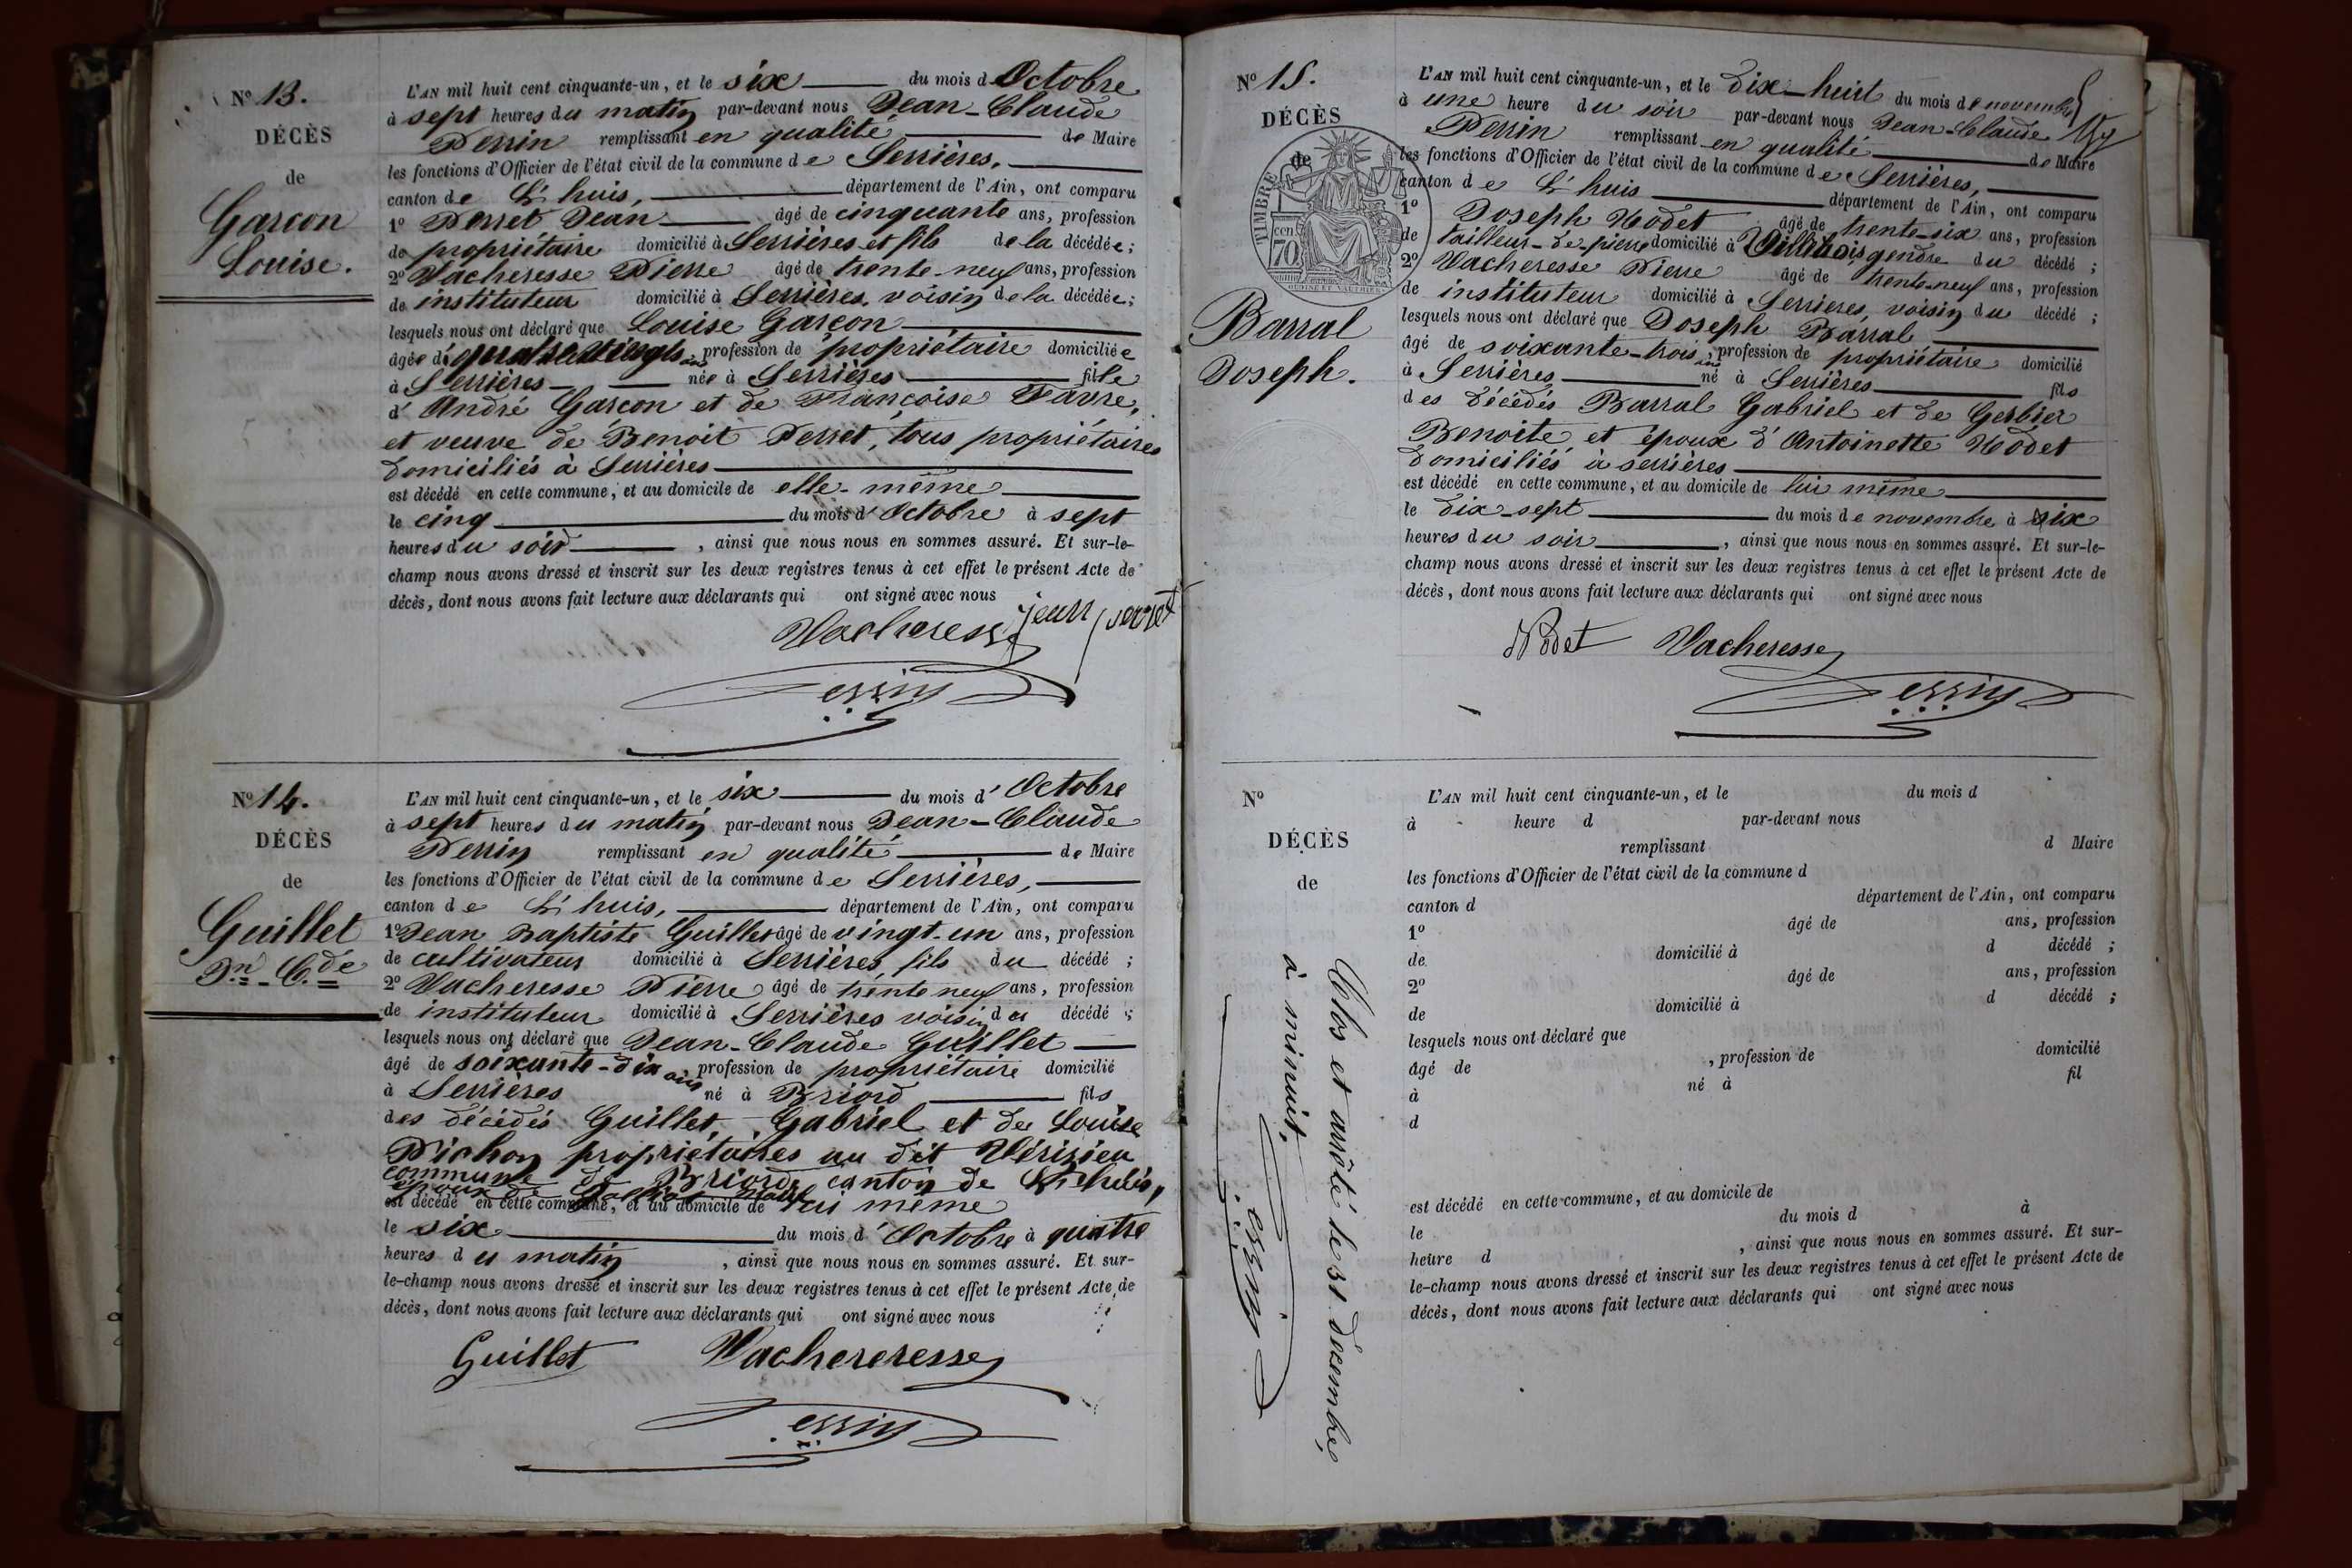 N° 13.
DÉCÈS
de
Garcon
Louise.
L'AN mil huit cent cinquante-un, et le six du mois d'Octobre
à sept heures du matin par-devant nous Jean-Claude
Perrin remplissant en qualité de Maire
les fonctions d'Officier de l'état civil de la commune de Serrières,
canton de L'huis, département de l'Ain, ont comparu
1° Perret Jean âgé de cinquante ans, profession
de propriétaire domicilié à Serrières et fils de la décédée;
2° Vacheresse Pierre âgé de trente-neuf ans, profession
de instituteur domicilié à Serrières, voisin de la décédée;
lesquels nous ont déclaré que Louise Garcon
âgée de quatre vingts ans, profession de propriétaire domiciliée
à Serrières née à Serrières fille
d'André Garcon et de Françoise Favre,
et veuve de Benoit Perret, tous propriétaires
domiciliés à Serrières
est décédé en cette commune, et au domicile de elle-même
le cinq du mois d'Octobre à sept
heures du soir, ainsi que nous nous en sommes assuré. Et sur-le-
champ nous avons dressé et inscrit sur les deux registres tenus à cet effet le présent Acte de
décès, dont nous avons fait lecture aux déclarants qui ont signé avec nous
Vacheresse jean perret
Perrin
N° 14.
DÉCÈS
de
Guillet
Jn-Cde
L'AN mil huit cent cinquante-un, et le six du mois d'Octobre
à sept heures du matin par-devant nous Jean-Claude
Perrin remplissant en qualité de Maire
les fonctions d'Officier de l'état civil de la commune de Serrières,
canton de L'huis, département de l'Ain, ont comparu
1° Jean Baptiste Guillet âgé de vingt-un ans, profession
de cultivateur domicilié à Serrières, fils du décédé;
2° Vacheresse Pierre âgé de trente neuf ans, profession
de instituteur domicilié à Serrières voisin du décédé;
lesquels nous ont déclaré que Jean-Claude Guillet
âgé de soixante-dix ans, profession de propriétaire domicilié
à Serrières né à Briord fils
des décédés Guillet, Gabriel et de Louise
Pichon propriétaires au dit Vérizieu
commune de Briord, canton de L'huis,
époux de
est décédé en cette commune, et au domicile de lui même
le six du mois d'Octobre à quatre
heures du matin, ainsi que nous nous en sommes assuré. Et sur-
le-champ nous avons dressé et inscrit sur les deux registres tenus à cet effet le présent Acte de
décès, dont nous avons fait lecture aux déclarants qui ont signé avec nous
Guillet Vachereresse
Perrin
N° 15.
DÉCÈS
de
TIMBRE
70 cen
Barral
Joseph.
L'AN mil huit cent cinquante-un, et le dix-huit du mois de novembre
à une heure du soir par-devant nous Jean-Claude
Perrin remplissant en qualité de Maire
les fonctions d'Officier de l'état civil de la commune de Serrières,
canton de L'huis département de l'Ain, ont comparu
1° Joseph Nodet âgé de trente-six ans, profession
de tailleur-de-pierre domicilié à Villebois, gendre du décédé;
2° Vacheresse Pierre âgé de trente-neuf ans, profession
de instituteur domicilié à Serrieres, voisin du décédé;
lesquels nous ont déclaré que Joseph Barral
âgé de soixante-trois ans, profession de propriétaire domicilié
à Serrières né à Serrières fils
des décédés Barral Gabriel et de Gerbier
Benoite, et époux d'Antoinette Nodet
domiciliés à serrières
est décédé en cette commune, et au domicile de lui même
le dix-sept du mois de novembre à six
heures du soir, ainsi que nous nous en sommes assuré. Et sur-le-
champ nous avons dressé et inscrit sur les deux registres tenus à cet effet le présent Acte de
décès, dont nous avons fait lecture aux déclarants qui ont signé avec nous
Nodet Vacheresse
Perrin
N°
DÉCÈS
de
Clos et arrêté le 31 décembre,
à minuit.
Perrin
L'AN mil huit cent cinquante-un, et le du mois d
à heure d par-devant nous
remplissant d Maire
les fonctions d'Officier de l'état civil de la commune d
canton d département de l'Ain, ont comparu
1° âgé de ans, profession
de domicilié à d décédé;
2° âgé de ans, profession
de domicilié à d décédé;
lesquels nous ont déclaré que
âgé de, profession de domicilié
à né à fil
d
est décédé en cette commune, et au domicile de
le du mois d à
heure d, ainsi que nous nous en sommes assuré. Et sur-
le-champ nous avons dressé et inscrit sur les deux registres tenus à cet effet le présent Acte de
décès, dont nous avons fait lecture aux déclarants qui ont signé avec nous